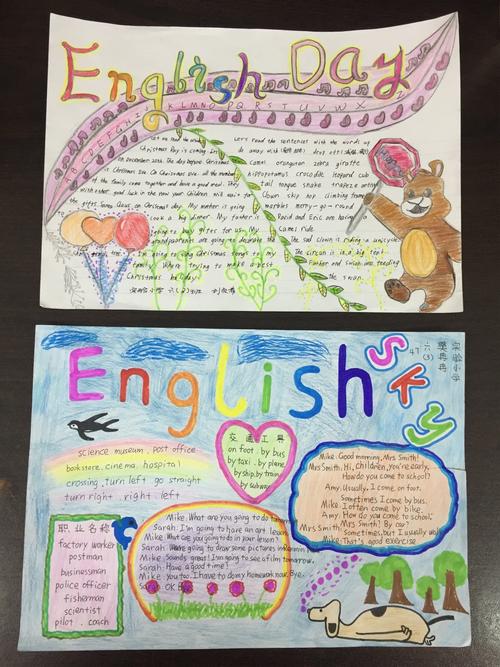 English Day
ABCDEFGHIJKLMNOPQRSTUVWX
Let me tell the
Christmas Day is coming. I'm
on December 25th. The day before Christmas
is Christmas Eve. On Christmas Eve. all the member
of the family come together and have a good meal. They
wish other good luck in the new year. Children will wait for
the gifts Santa Claus on Christmas day. My mother is going
to cook a big dinner. My father is
going to buy gifts for us. My
grandparents are going to decorate the
tree. I'm going to sing Christmas songs for my
family. Where trying to make a best
Christmas holiday!
实验小学
Let's read the sentences with the words up
do away wish
camel orangutan zebra giraffe
hippopotamus crocodile leopard cub
tail tongue snake trapeze artist
clown skip hop climbing frame
marbles merry-go-round
David and Eric are having a
camel ride.
The sad clown is riding a unicycle.
The circus is in a big tent.
Father and Susan are feeding
the swan.
English
SKY
实验小学
六(3)
47
science museum. post office
bookstore. cinema. hospital
crossing. turn left go straight
turn right. right. left
交通工具
on foot. by bus
by taxi. by plane
by ship. by train
by subway
Mike: Good morning, Mrs Smith!
Mrs Smith: Hi, children, you're early.
How do you come to school?
Amy: Usually, I come on foot.
Sometimes I come by bus.
Mike: I often come by bike.
Amy: How do you come to school,
Mrs Smith? By car?
Mrs Smith: Sometimes, but I usually walk
Mike: That's good exercise
职业名称
factory worker
postman
businessman
police officer
fisherman
scientist
pilot. coach
Mike: What are you going to do tomorrow
Sarah: I'm going to have an art lesson
Mike: What are you going to do in your lesson?
Sarah: We're going to draw some pictures in
Mike: Sounds great! I'm going to see a film tomorrow.
Sarah: Have a good time!
Mike: You too. I have to do my homework now. Bye.
Sarah: OK. Bye